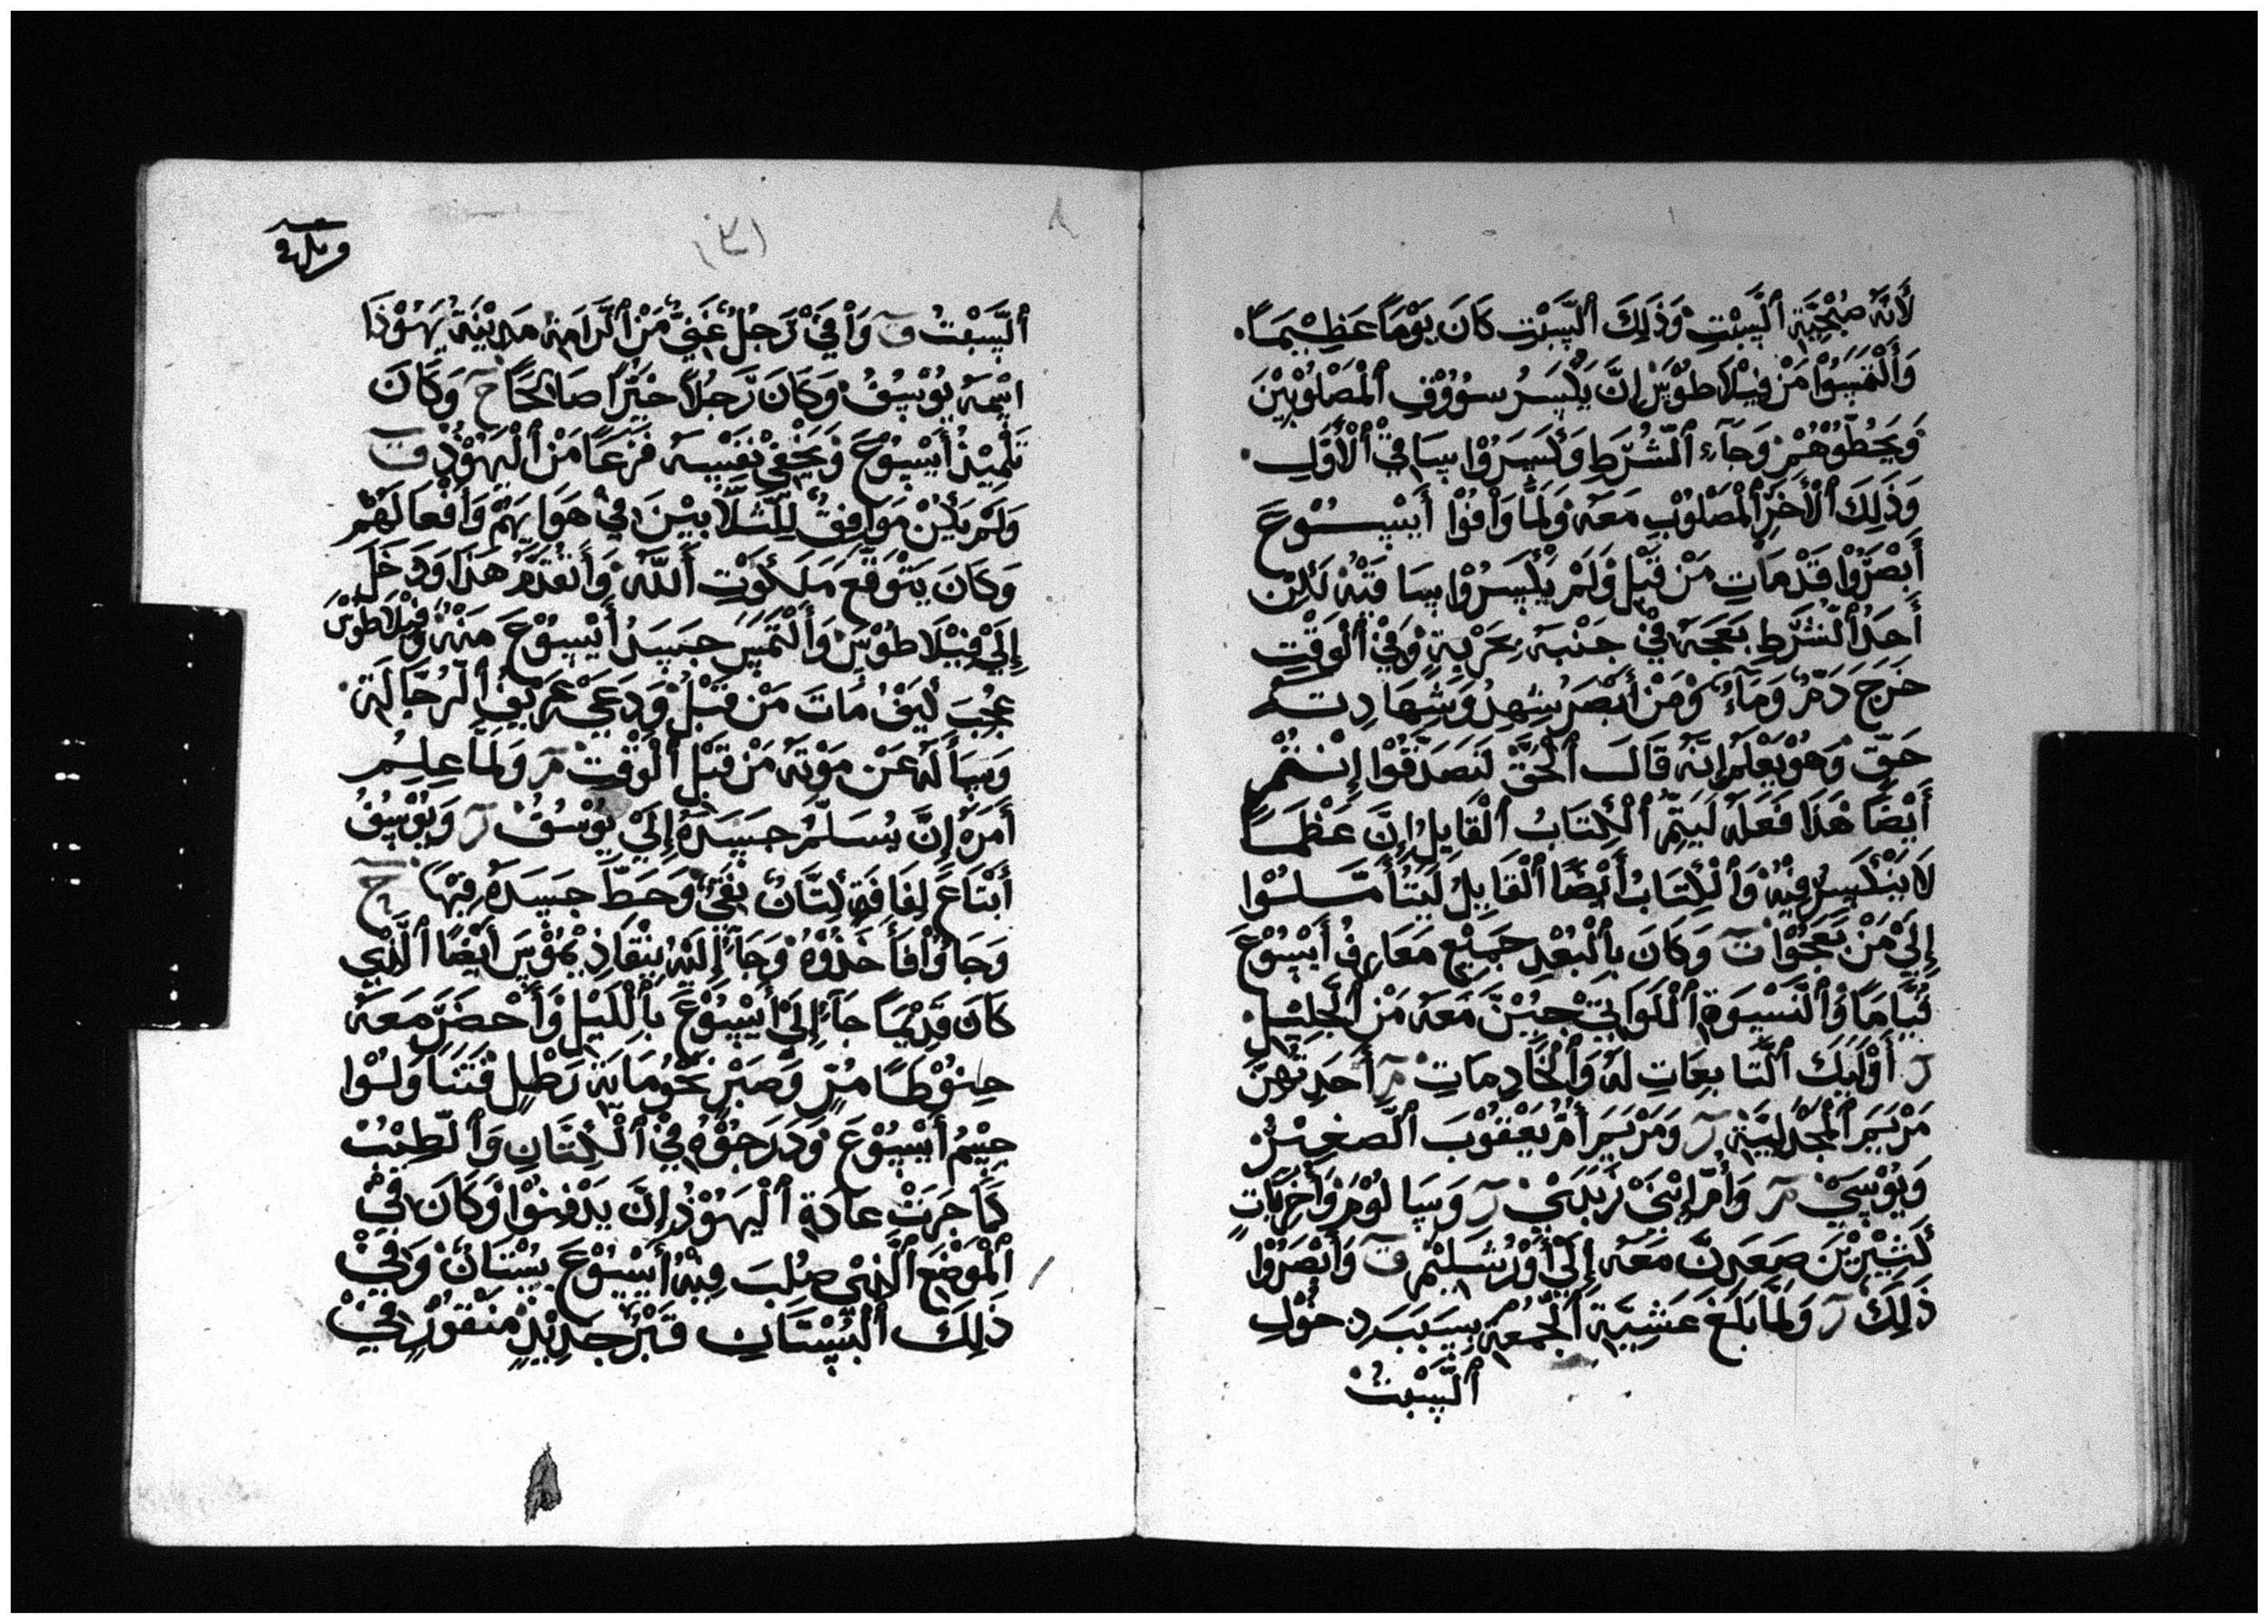 لَأَنَّهُ صُبْحِيَّةِ ٱلسَّبْتِ وَذَٰلِكَ ٱلسَّبْتِ كَانَ يَوْمًا عَظِيْمًا.
وَٱلْتَمَسُوْا مَنْ فِيْلَاطُوْسَ إِنَّ يَكْسَرُ سُوُوْقِ ٱلْمَصْلُوْبِيْنَ
وَيَحُطُّوْهُمْ وَجَآءِ ٱلشُّرَطِ وَكَسَرُوْا سَاقَيْ ٱلْأَوَّلِ.
وَذَلِكَ ٱلْأَخَرَ ٱلْمَصْلُوْبِ مَعَهُ وَلَمَّا وَافُوْا أَيْسُوْعَ
أَبْصَرُوْا قَدْ مَاتِ مَنْ قَبْلِ وَلَمْ يَكْسَرُوْا سَاقَيْهْ لَكِنْ
أَحَدُ ٱلشُّرَطِ بَعَجَهُ فِيْ جَنْبَهُ بِحَرْبَةٍ وَفِيْ ٱلْوَقْتِ
خَرَجَ دَمٌ وَمَاءٌ وَمَنْ أَبْصَرَ شِهِدُ وَشِهَادِتَهُ
حَقٌّ وَهُوْ يَعْلَمُ إِنَّهُ قَالَ ٱلْحَقَّ لَتَصَدَّقُوْا إِنْتُمْ
أَيْضًا هَذَا فَعَلَهُ لَيَتِمَّ ٱلْكِتَابُ ٱلْقَايِلُ إِنَّ عَظْمًا
لَا يَنْكَسِرُ فِيْهْ وَٱلْكِتَابُ أَيْضًا ٱلْقَايِلُ لَيَتَأَمَّلُوْا
إِلَىْ مَنْ بَعَجُوْا ۞ وَكَانَ بِٱلْبُعْدِ جَمِيْعِ مَعَارِفُ أَيْسُوْعَ
قِيَّامًا وَٱلنَّسْوَةِ ٱللَوَاتِيْ جِيْنَ مَعَهُ مَنْ ٱلْجَلِيْلِ.
ر أَوْلَيْكَ ٱلتَّابِعَاتِ لَهُ وَٱلْخَّادِمَاتِ مر أَحَدِيَهُنَّ
مَرْيَمَ ٱلْمَجْدَلِيَّةِ ر وَمَرْيَمَ أُمُّ يَعْقُوْبَ ٱلصَّغِيْرُ
وَيُوْسَيْ مر وَأُمُّ إِبْنَيْ زَبْدَيْ ر وَسَالُوْمَ وَأَخِرْيَاتٍ
كَثِيْرِيْنَ صَعَدِنَّ مَعَهُ إِلَىْ أُوْرُشَلِيْمَ ق وَأَبْصَرُوْا
ذَلِكَ ر وَلَمَّا بَلَغَ عَشِيَةِ ٱلْجُمْعَةِ بِسَبَبَ دِخُوْلِ
ٱلسَّبْتْ
(٣)
ٱلسَّبْتْ ق وَافَيْ رَجُلٌ غَنِيٌّ مَنْ ٱلرَّامَةِ مَدِيْنَةِ يَهُوْذَا
اسْمَهُ يُوْسُفُ وَكَانَ رَجُلًا خَيِّرًا صَالِحًا ر وَكَانَ
تَلْمِيْذُ أَيْسُوْعَ وَيَخْفِيْ نَفْسَهُ فَزَعًا مَنْ ٱلْيَهُوْذِ ق
وَلَمْ يَكْنْ مَوَافِقٌ لِلثَّلَّابِيْنَ فِيْ هَوَايِهُمْ وَافْعَالَهُمْ
وَكَانَ يَتَوَقَّعَ مَلَكُوْتِ أَللَّهِ وَأَنْقَدَّمَ هَذَا وَدَخَلَ
إِلَىْ فِيْلَاطُوْسَ وَأَلْتَمَسَ جَسَدُ أَيْسُوْعَ مَنْهْ وَفِيْلَاطُوْسْ
عِجُبَ كَيْفْ مَاتَ مَنْ قَبْلُ وَدَعَيْ عَرِّيْفِ ٱلرُّجَّالَةِ.
وَسَأَلَهُ عَنْ مَوْتَهُ مَنْ قَبْلِ ٱلْوَقْتْ مر وَلَمَّا عِلِمُ
أَمَرَهُ إِنَّ يُسَلَّمُ جَسَدَهُ إِلَىْ يُوْسُفْ ر وَيُوْسِفُ
أَبْتَاعَ لِفَافَةِ كِتَّانٌ نِقَيٌّ وَحَطَّ جَسَدَهُ فِيْهَا ح
وَجَاوُاْ فَأَخَذُوْهُ وَجَآ إِلَيْهْ نِيْقَاذِيْمُوْسَ أَيْضًا ٱلَّذِي
كَانَ قَدِيْمًا جَآ إِلَىْ أَيْسُوْعَ بَٱللَيْلِ وَأَحْضَرَ مَعَهُ
حِنُوْطًا مُرٍّ وَصَبْرٍ نَحْوَ مَايَةِ رَطْلٍ فَتَنَاوَلُوْا
جِسْمُ أَيْسُوْعَ وَدَرَجُوْهُ فِيْ ٱلْكِتَّانِ وَٱلطِيْبْ
كَمَا جَرَتْ عَادَةِ ٱلْيَهُوْذُ إِنَّ يَدْفِنُوْا وَكَانَ فِيْ
ٱلْمَوْضِعِ ٱلَّذِيْ صُلِبَ فِيْهْ أَيْسُوْعَ بِسْتَانٌ وَفِيْ
ذَلِكَ ٱلْبُسْتَانِ قَبْرٌ جَدِيْدٍ مَنْقُوْرٍ فِيْ